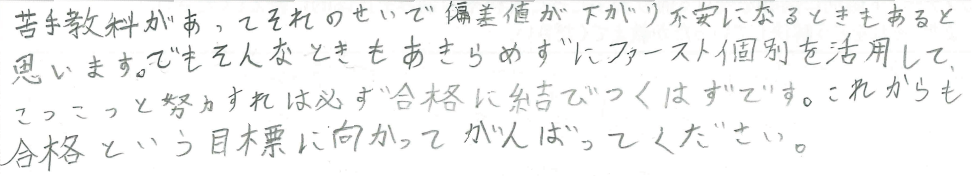 苦手教科があってそれのせいで偏差値が下がり不安になるときもあると
思います。でもそんなときもあきらめずにファースト個別を活用して、
こつこつと努力すれば必ず合格に結びつくはずです。これからも
合格という目標に向かってがんばってください。